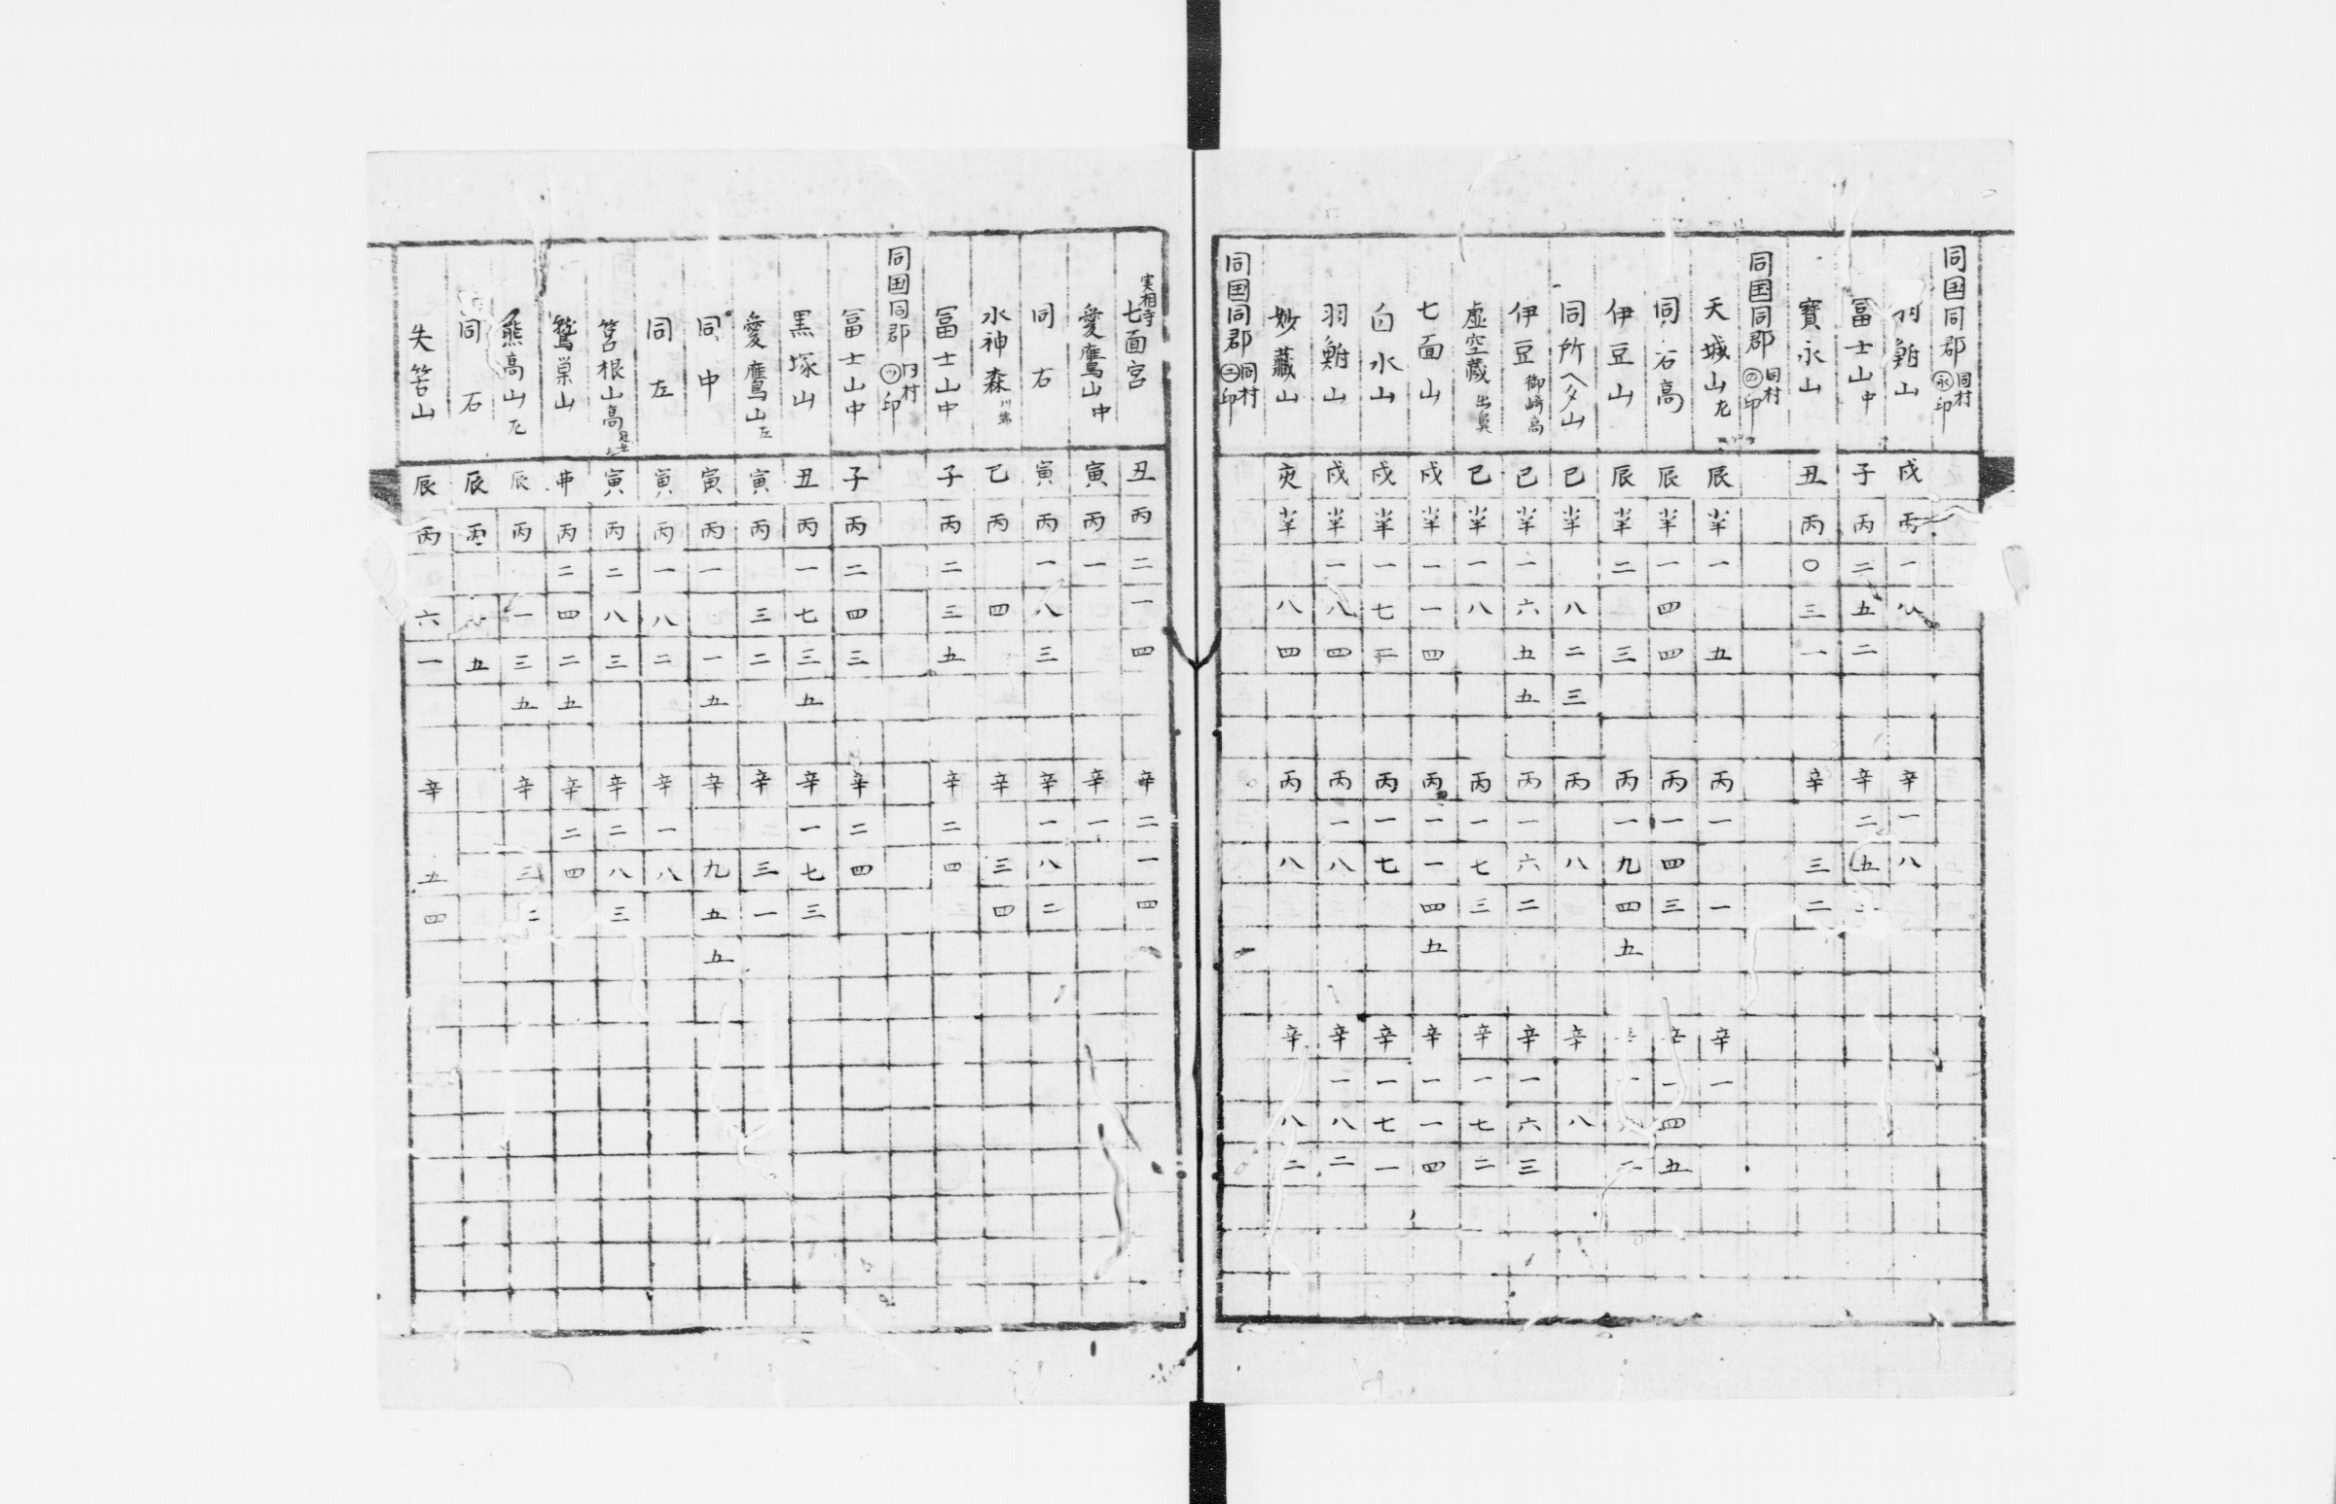 同国同郡 同村 ㊌印
羽鮒山 戌 丙 一 八 辛 一 八
冨士山中 子 丙 二 五 二 辛 二 五
寳永山 丑 丙 〇 三 一 辛 三 二
同国同郡 同村 印
天城山左 辰 半 一 五 丙 一 一 辛 一
同 右高 辰 半 一 四 四 丙 一 四 三 辛 一 四 五
伊豆山 辰 半 二 三 丙 一 九 四 五 辛
同所ヘタ山 巳 半 八 二 三 丙 八 辛 八
伊豆 御崎高 巳 半 一 六 五 五 丙 一 六 二 辛 一 六 三
虚空蔵 出鼻 巳 半 一 八 丙 一 七 三 辛 一 七 二
七面山 戌 半 一 一 四 丙 一 一 四 五 辛 一 一 四
白水山 戌 半 一 七 二 丙 一 七 辛 一 七 一
羽鮒山 戌 半 一 八 四 丙 一 八 辛 一 八 二
妙蔵山 半 八 四 丙 八 辛 八 二
同国同郡 同村 ㊁印
実相寺 七面宮 丑 丙 二 一 四 辛 二 一 四
愛鷹山中 寅 丙 一 辛 一
同 右 寅 丙 一 八 三 辛 一 八 二
水神森 川端 巳 丙 四 辛 三 四
冨士山中 子 丙 二 三 五 辛 二 四
同国同郡 同村 印
冨士山中 子 丙 二 四 三 辛 二 四
黒塚山 丑 丙 一 七 三 五 辛 一 七 三
愛鷹山左 寅 丙 三 二 辛 三 一
同 中 寅 丙 一 一 五 辛 九 五 五
同 左 寅 丙 一 八 二 辛 一 八
筥根山高 寅 丙 二 八 三 辛 二 八 三
鷲巣山 丙 二 四 二 五 辛 二 四
熊高山左 辰 丙 一 三 五 辛 三 二
同 右 辰 丙 五
矢筈山 辰 丙 六 一 辛 五 四